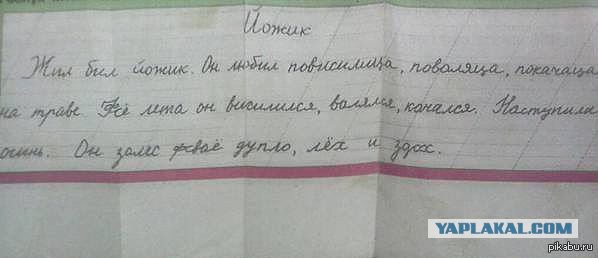 Йожик
Жил бил йожик. Он любил повисилица, поволяца, покачаца
на траве. Фсё лета он висилился, волялся, качался. Наступила
осинь. Он залес фсваё дупло, лёх и здох.
YAPLAKAL.COM
pikabu.ru